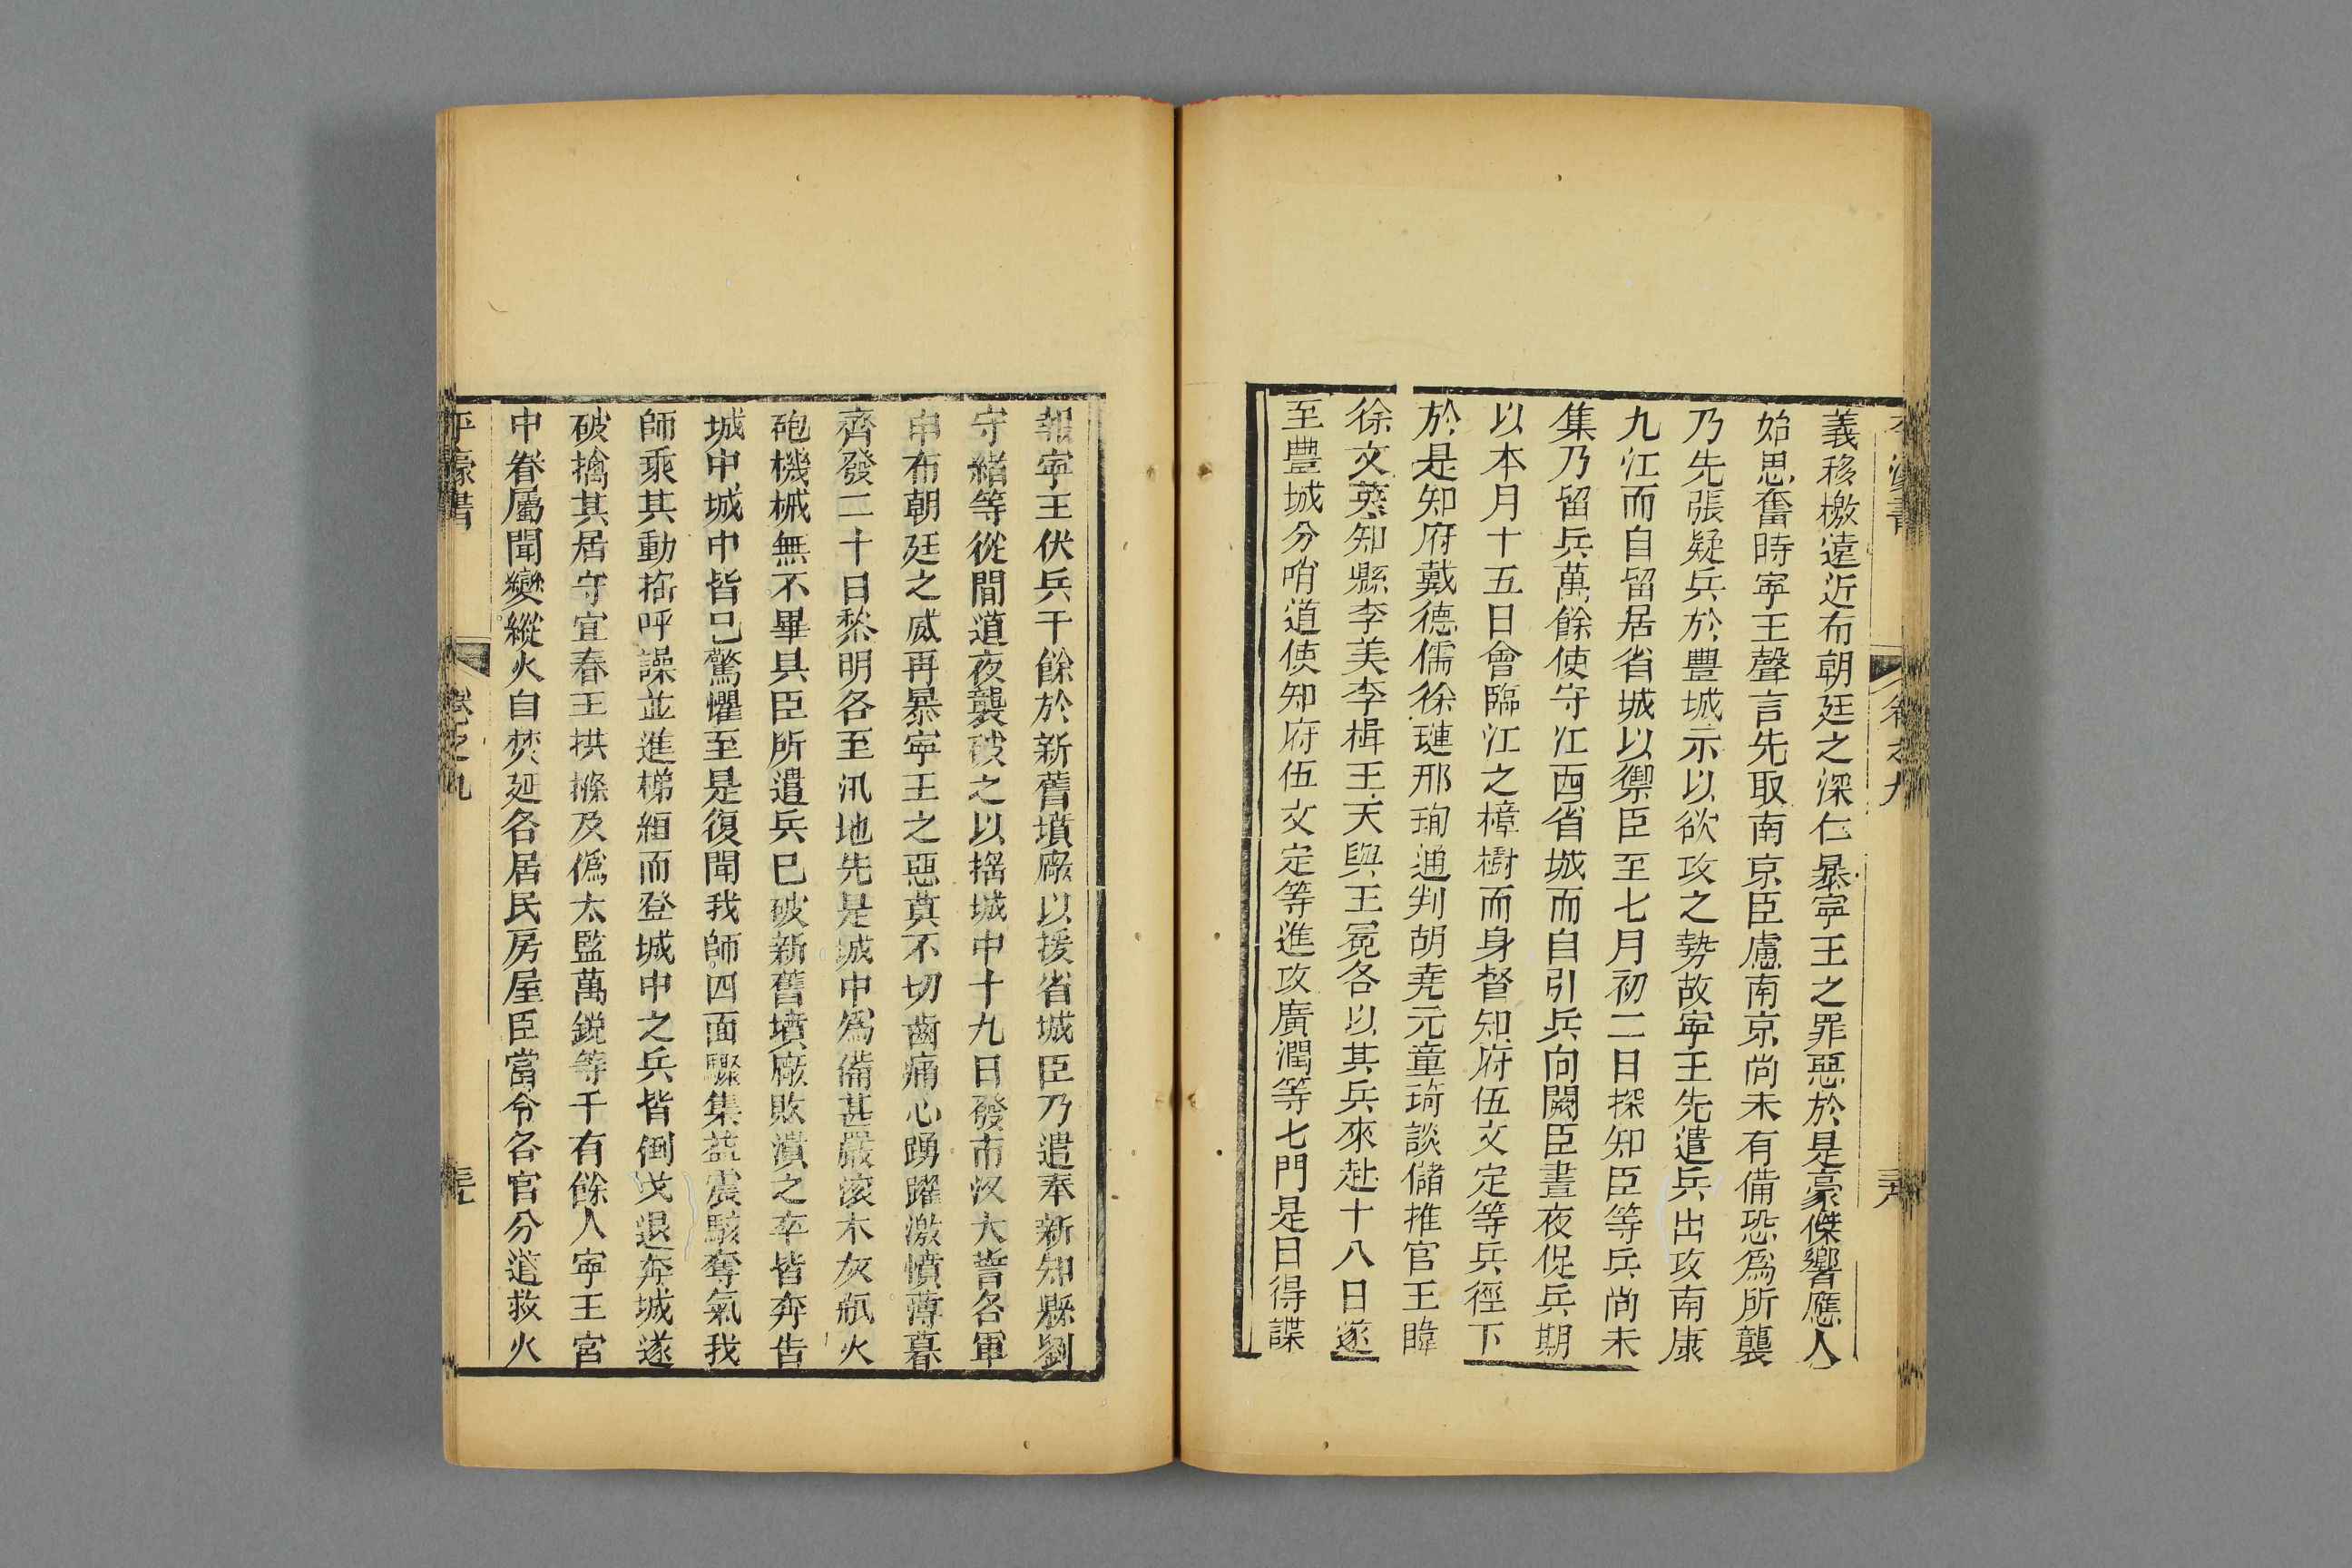 義移檄遠近布朝廷之深仁暴寜王之罪惡於是豪傑響應人
始思奮時寜王聲言先取南京臣慮南京尚未有備恐爲所襲
乃先張疑兵於豐城示以欲攻之勢故寜王先遣兵出攻南康
九江而自留居省城以禦臣至七月初二日探知臣等兵尚未
集乃留兵萬餘使守江西省城而自引兵向闕臣晝夜促兵期
以本月十五日會臨江之樟樹而身督知府伍文定等兵徑下
於是知府戴德儒徐璉邢珣通判胡堯元童琦談儲推官王暐
徐文英知縣李美李楫王天與王冕各以其兵來赴十八日遂
至豐城分哨道使知府伍文定等進攻廣潤等七門是日得諜
報寜王伏兵千餘於新舊墳廠以援省城臣乃遣奉新知縣劉
守緒等從間道夜襲破之以搖城中十九日發市汊大誓各軍
申布朝廷之威再暴寜王之惡莫不切齒痛心踴躍激憤薄暮
齊發二十日黎明各至汛地先是城中爲備甚嚴滾木灰瓶火
砲機械無不畢具臣所遣兵已破新舊墳廠敗潰之卒皆奔告
城中城中皆已驚懼至是復聞我師四面驟集益震駭奪氣我
師乘其動揺呼譟並進梯絙而登城中之兵皆倒戈退奔城遂
破擒其居守宜春王拱樤及僞太監萬鋭等千有餘人寜王宮
中眷屬聞變縱火自焚延各居民房屋臣當令各官分道救火
平濠書
卷之九